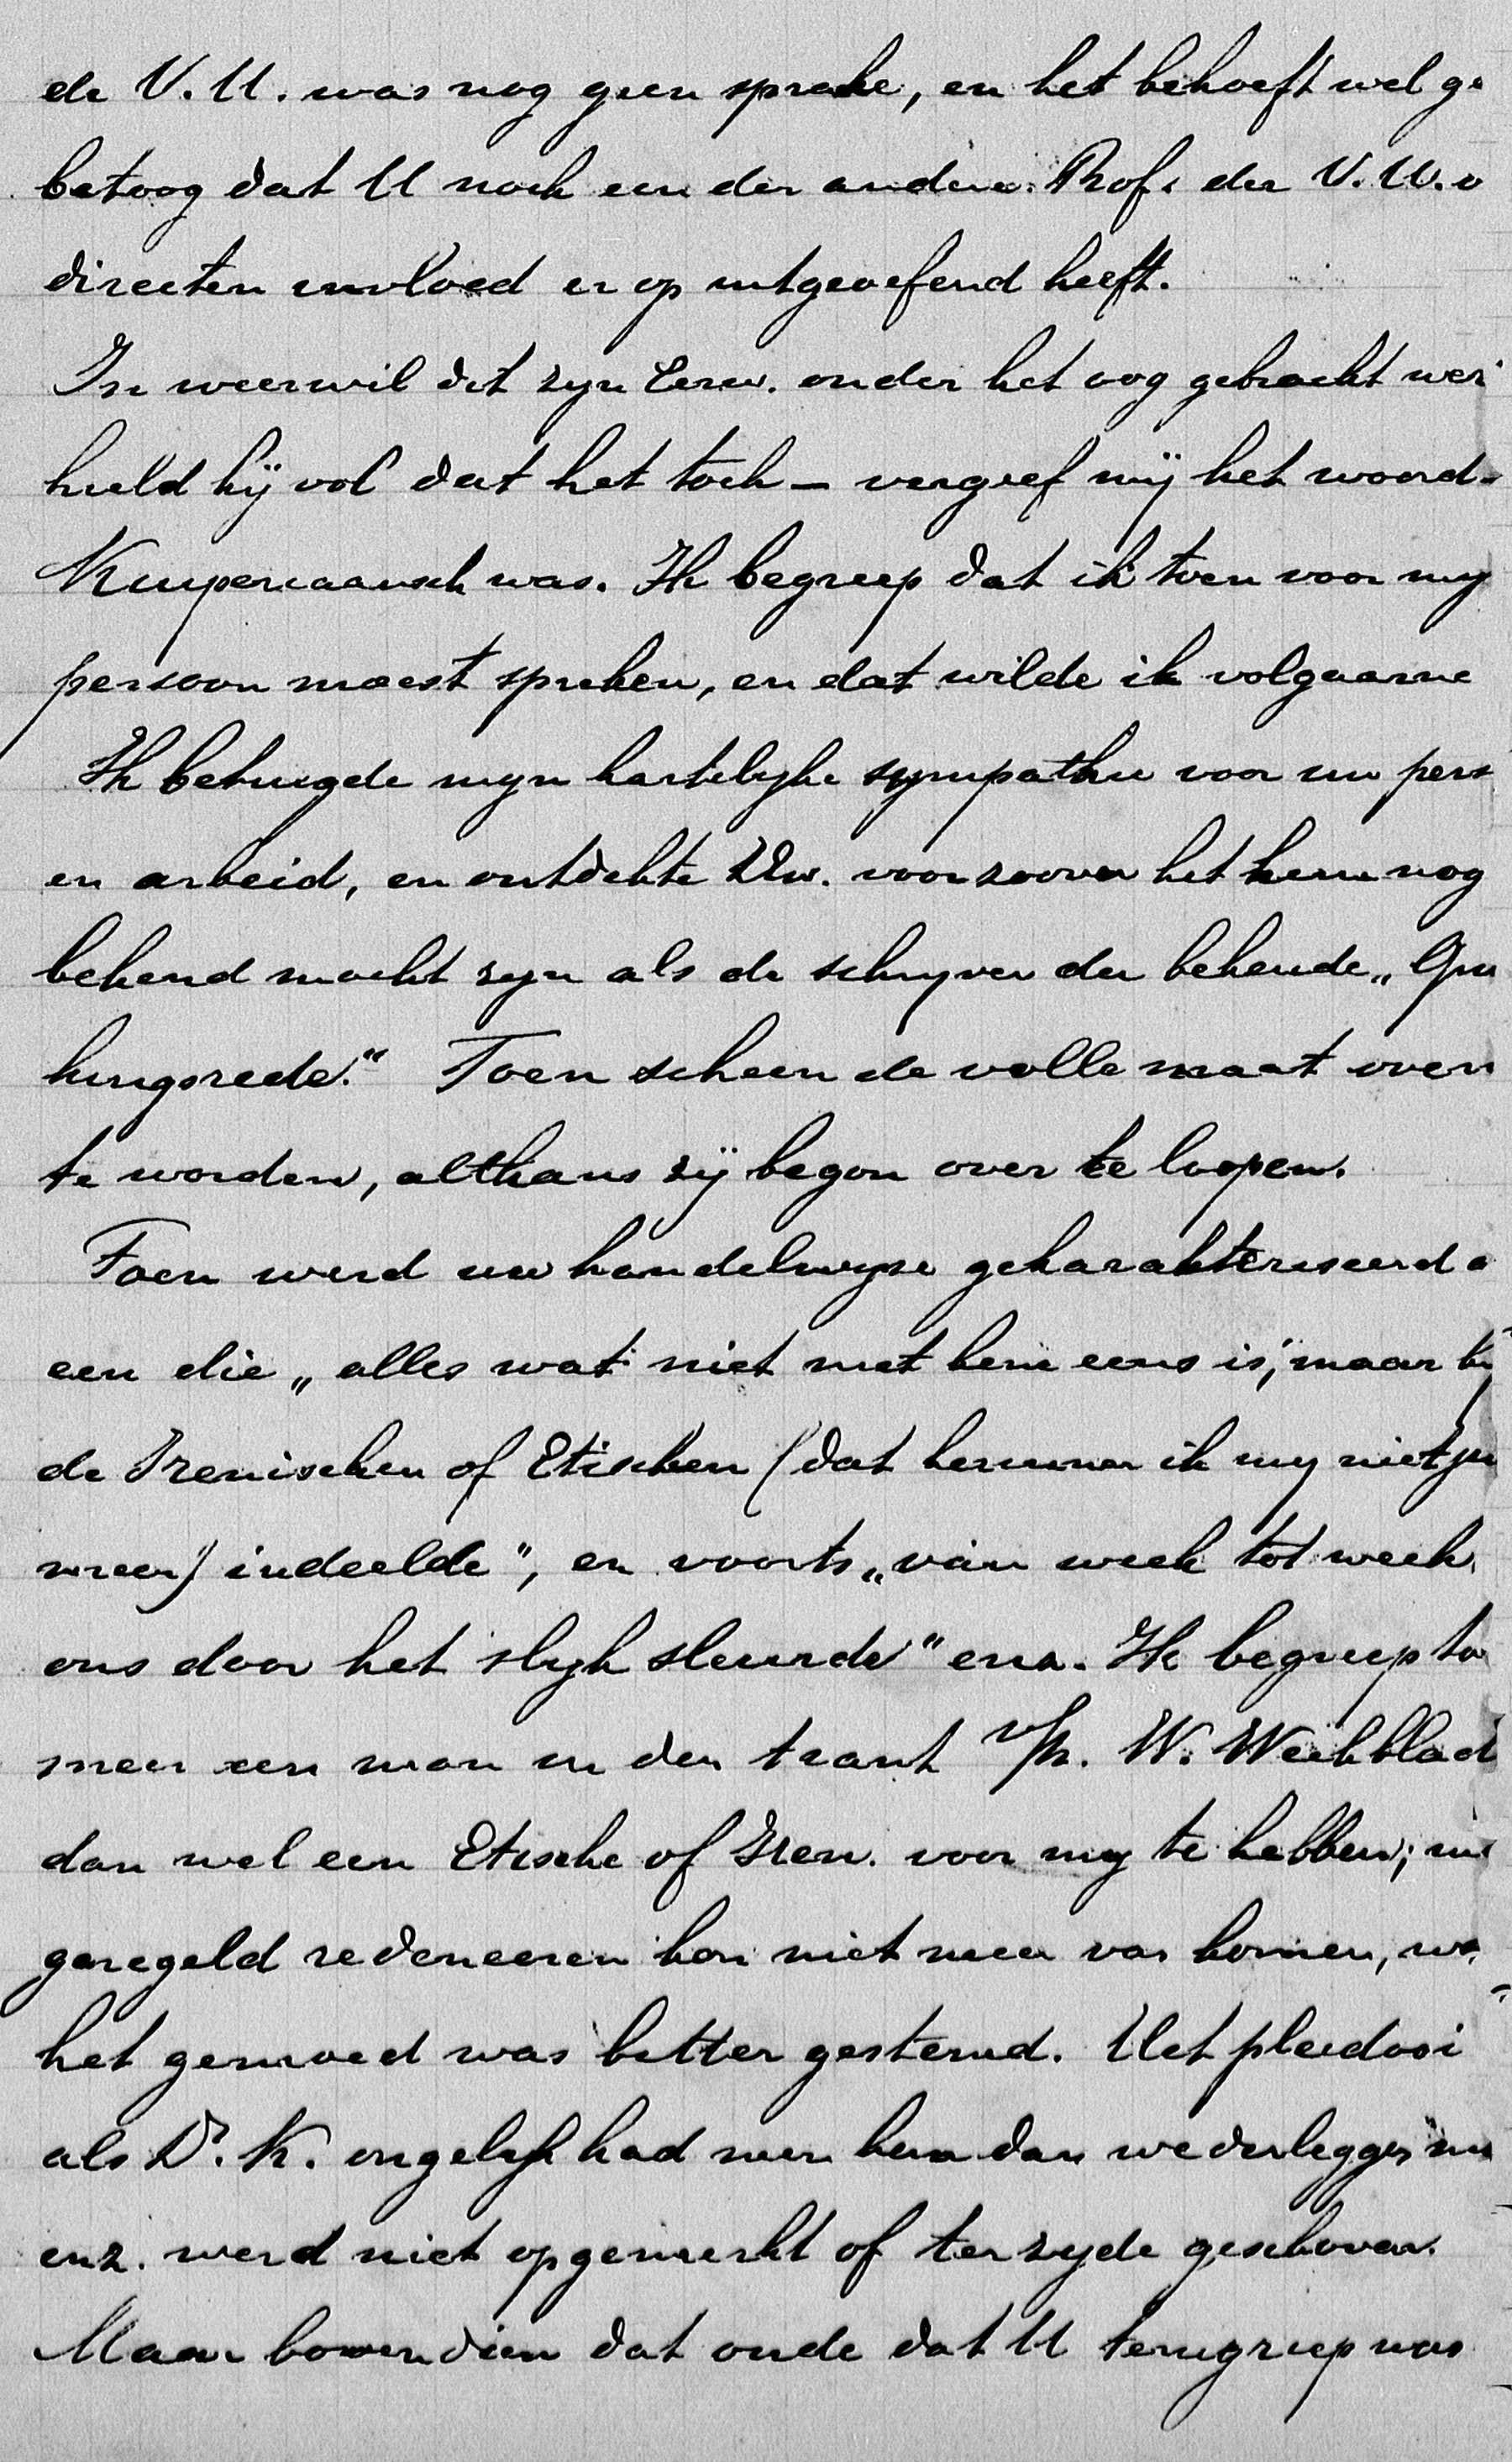 de V.U. was nog geen sprake, en het behoeft wel ge
betoog dat U noch een der andere Prof. der V.U.
directen invloed er op uitgeoefend heeft.
In weerwil dit zyn Eerw. onder het oog gebracht wer
hield hij vol dat het toch – vergeef mij het woord –
Kuyperiaansch was. Ik begreep dat ik toen voor my
persoon moest spreken, en dat wilde ik volgaarne
Ik betuigde myn hartelyke sympathie voor uw pers
en arbeid, en ontdekte Uw. voorzoover het hem nog
bekend mocht zyn als de schryver der bekende „
kingsrede." Toen scheen de volle maat over
te worden, althans zij begon over te loopen.
Toen werd uw handelwyze gekarakteriseerd a
een die „alles wat niet met hem eens is, maar by
de Irenischen of Etischen (dat herinner ik my niet ju
meer) indeelde", en voorts „van week tot week
ons door het slyk sleurde" enz. Ik begreep to
meer een man in den trant v/h. W. Weekblad
dan wel een Etische of Iren. voor my te hebben;
geregeld redeneeren kon niet meer van komen, wa
het gemoed was bitter gestemd. Het pleidooi
als Dr. K. ongelyk had men hem dan wederleggen
enz. werd niet opgemerkt of ter zyde geschoven.
Maar bovendien dat oude dat U terugriep was